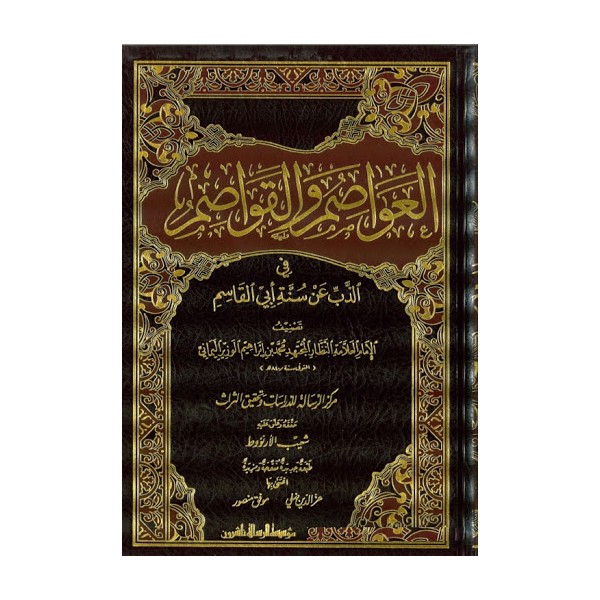 العَوَاصِمُ وَالقَوَاصِمُ
في
الذَّبِّ عَنْ سُنَّةِ أَبِي القَاسِمِ
تصنيف
الإمام العلامة النظار المجتهد محمد بن إبراهيم الوزير اليماني
المتوفى سنة ٨٤٠هـ
مركز الرسالة للدراسات وتحقيق التراث
حققه وعلق عليه
شعيب الأرنؤوط
طبعة جديدة منقحة ومزيدة
اعتنى بها
عز الدين ضلي موفق منصور
مؤسسة الرسالة ناشرون